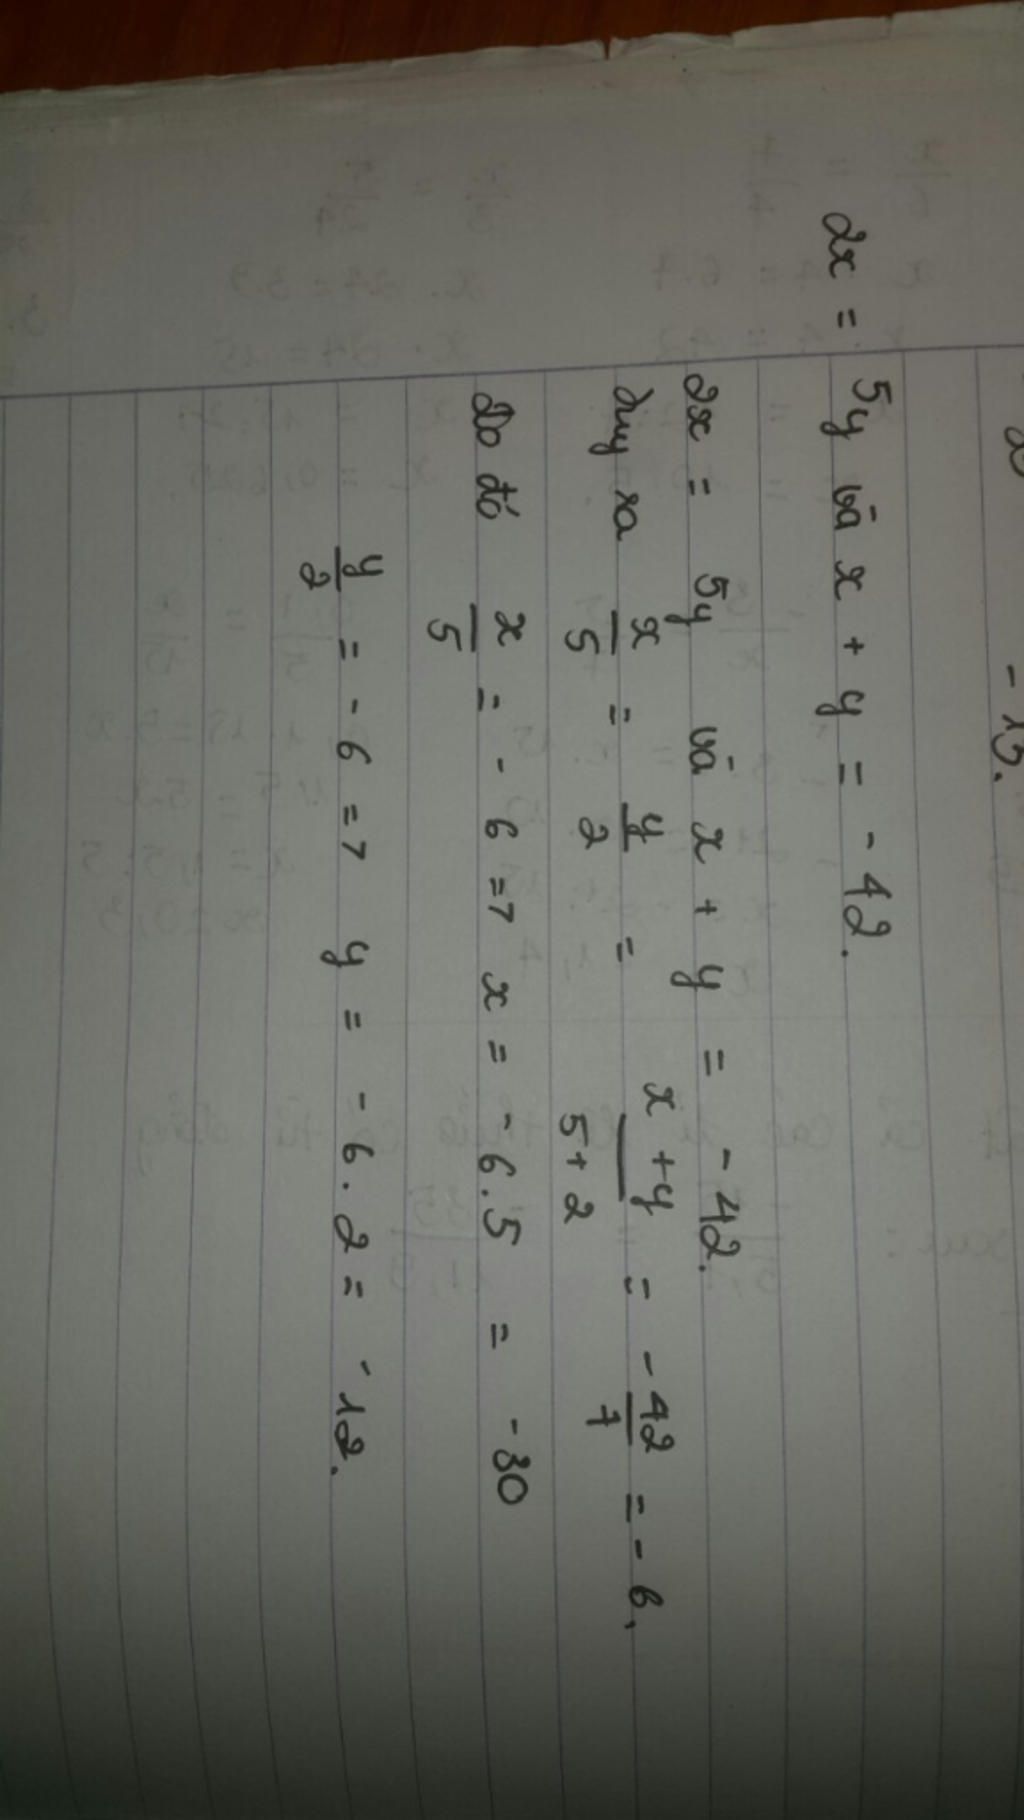 - 15.
2x = 5y và x + y = - 42.
2x = 5y và x + y = - 42.
suy ra x/5 = y/2 = x + y/5 + 2 = - 42/7 = - 6,
Do đó x/5 = - 6 => x = - 6 . 5 = - 30
y/2 = - 6 => y = - 6 . 2 = - 12.